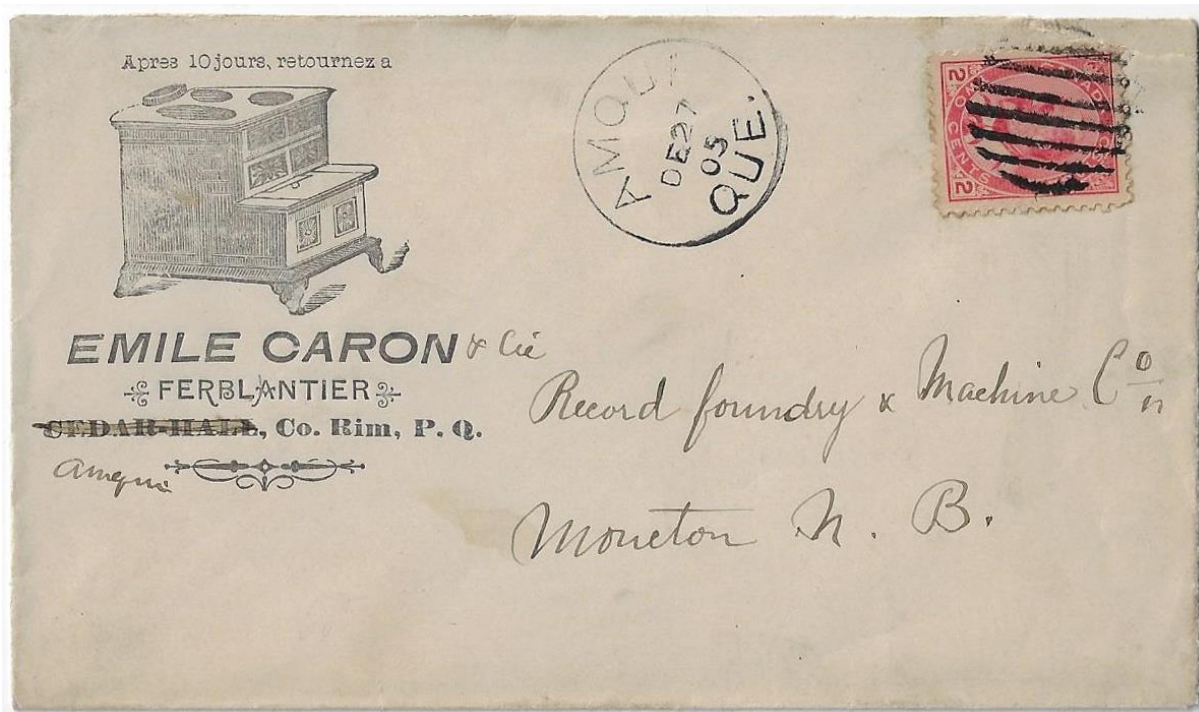 Apres 10 jours, retournez a
EMILE CARON & Cie
FERBLANTIER
CEDAR-HALL, Co. Rim, P. Q.
Amqui
AMQUI
DE 27
05
QUE.
2 CENTS 2
Record foundry & Machine Co
Moncton N. B.